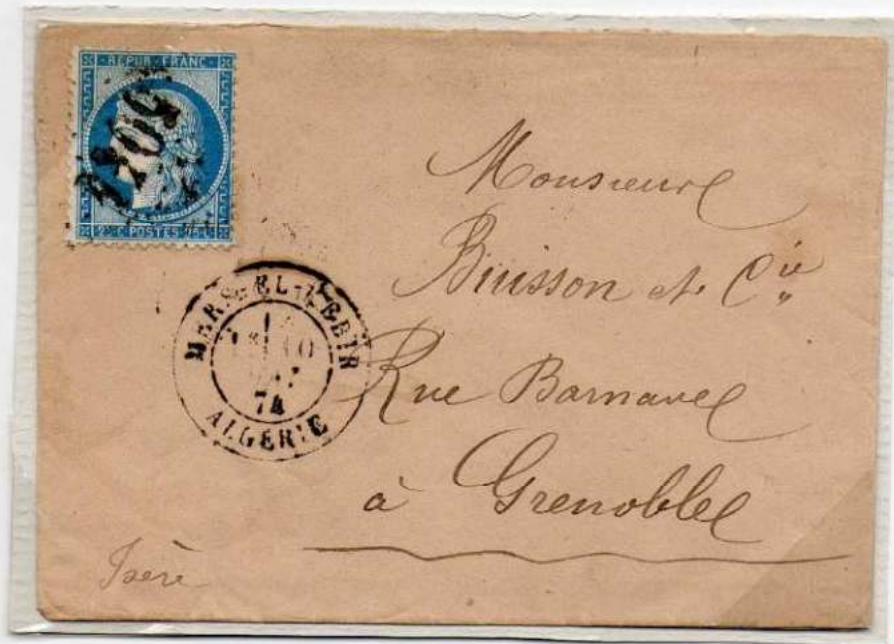 REPUB · FRANC
5044
25 C POSTES 25 C
MERS-EL-KEBIR
10
74
ALGERIE
Monsieur
Buisson et Cie
Rue Barnave
à Grenoble
Isère